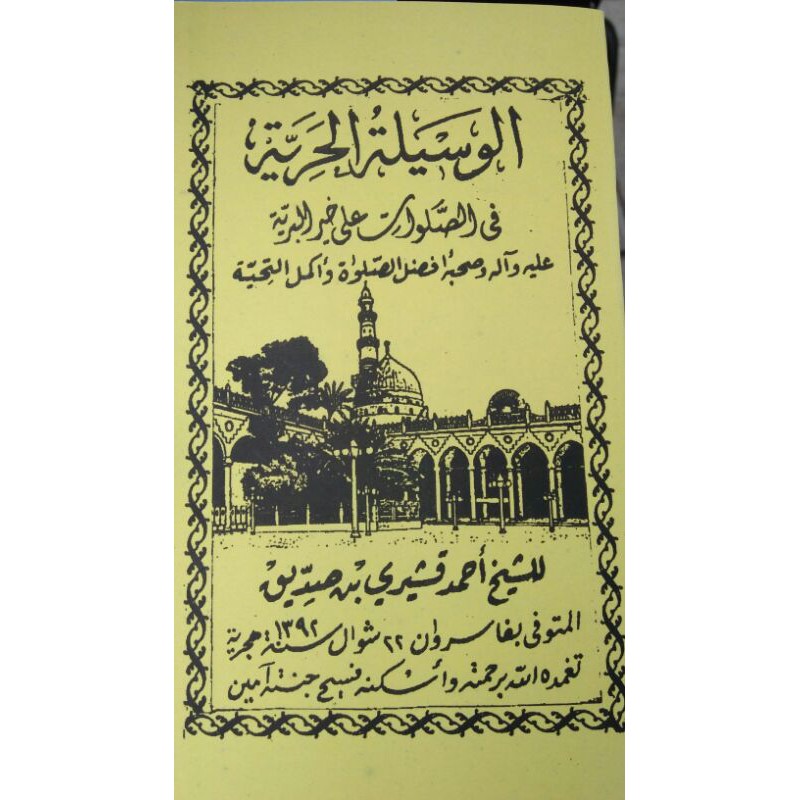 الوَسِيلَةُ الحَرِيَّة
فى الصَّلَوات على خير البرية
عليه وآله وصحبه أفضل الصَّلوة وأكمل التحيَّة
للشيخ أحمد قشيري بن صِدِّيق
المتوفى بفاسروان ٢٢ شوال سنة ١٣٩٢ هجرية
تغمده الله برحمته وأسكنه فسيح جنته آمين